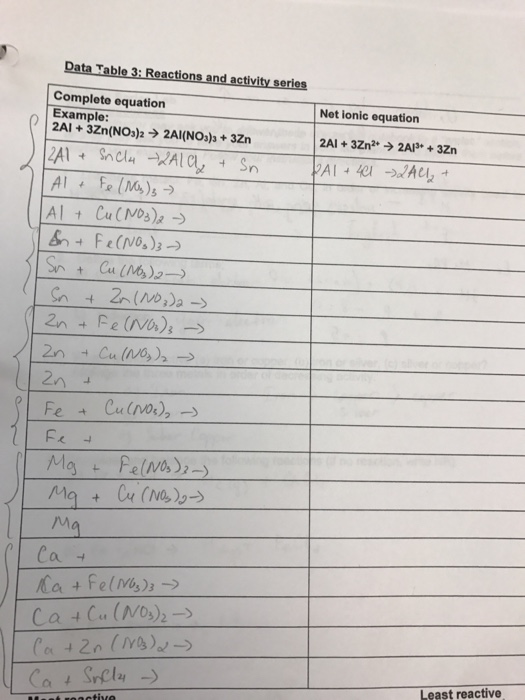 Data Table 3: Reactions and activity series
Complete equation
Net ionic equation
Example:
2Al + 3Zn(NO₃)₂ → 2Al(NO₃)₃ + 3Zn
2Al + 3Zn²⁺ → 2Al³⁺ + 3Zn
2Al + SnCl₄ → 2AlCl₂ + Sn
2Al + 4Cl → 2ACl₂ +
Al + Fe(NO₃)₃ →
Al + Cu(NO₃)₂ →
Sn + Fe(NO₃)₃ →
Sn + Cu(NO₃)₂ →
Sn + Zn(NO₃)₂ →
Zn + Fe(NO₃)₃ →
Zn + Cu(NO₃)₂ →
Zn +
Fe + Cu(NO₃)₂ →
Fe +
Mg + Fe(NO₃)₃ →
Mg + Cu(NO₃)₂ →
Mg
Ca +
Ca + Fe(NO₃)₃ →
Ca + Cu(NO₃)₂ →
Ca + Zn(NO₃)₂ →
Ca + SnCl₄ →
Most reactive
Least reactive